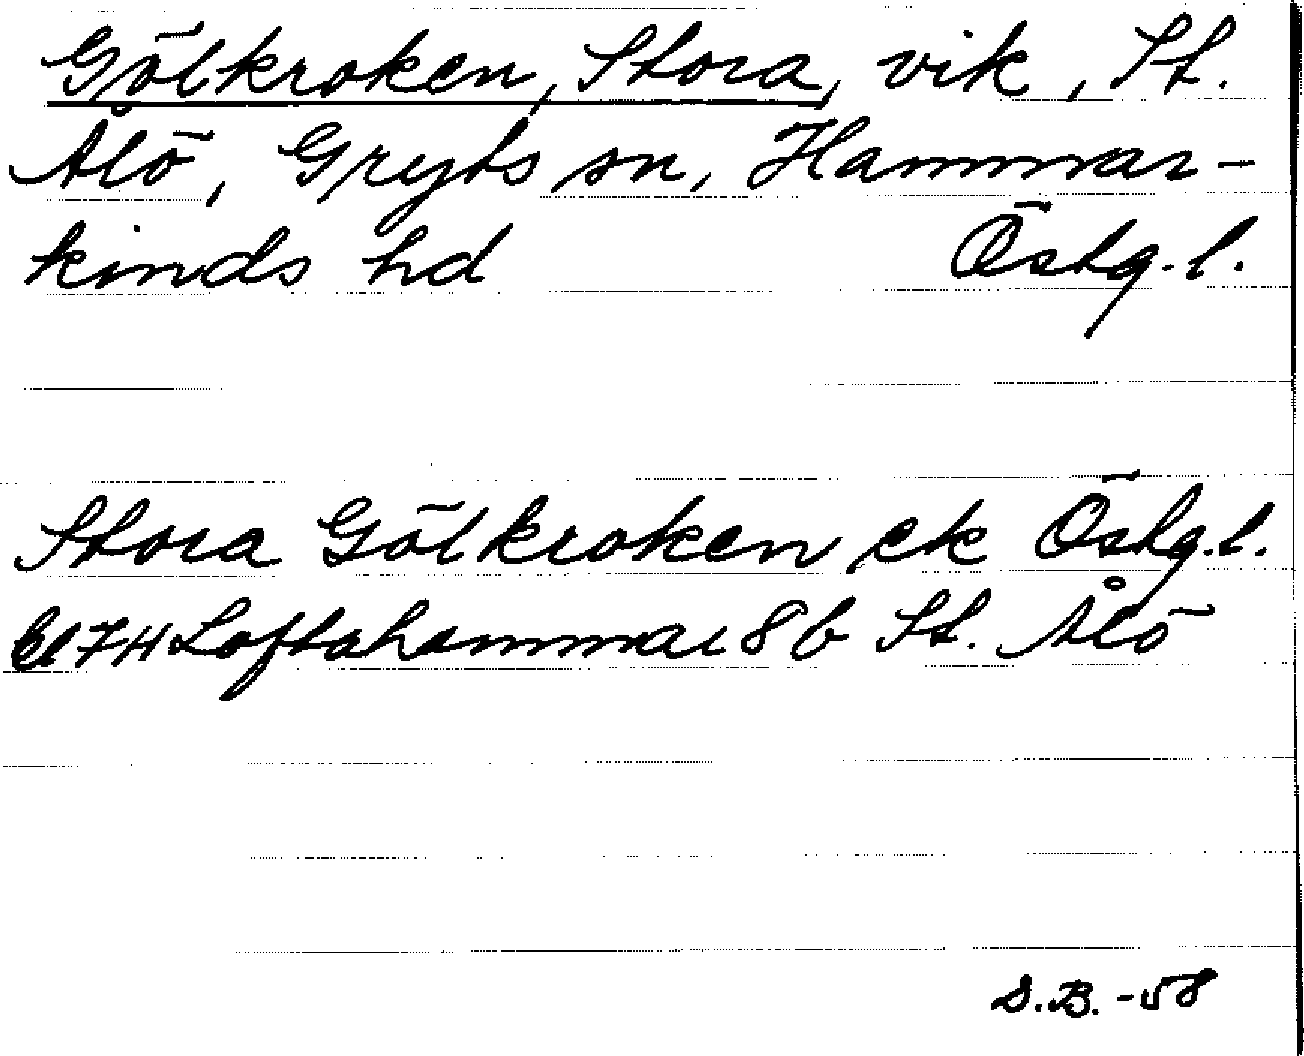 Gölkroken, Stora, vik, St.
Ålö, Gryts sn, Hammar-
kinds hd Östg.l.
Stora Gölkroken ek Östg.l.
bl 74 Loftahammar 8b St. Ålö
S.B. -58